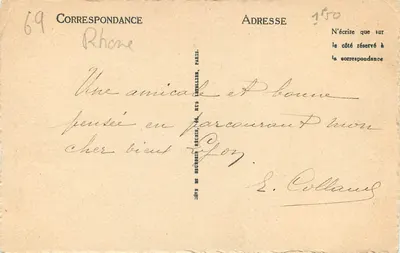 69
CORRESPONDANCE
ADRESSE
150
Rhone
N'écrire que sur
le côté réservé à
la correspondance
Une amicale et bonne
pensée en parcourant mon
cher vieux Lyon
E. Colland